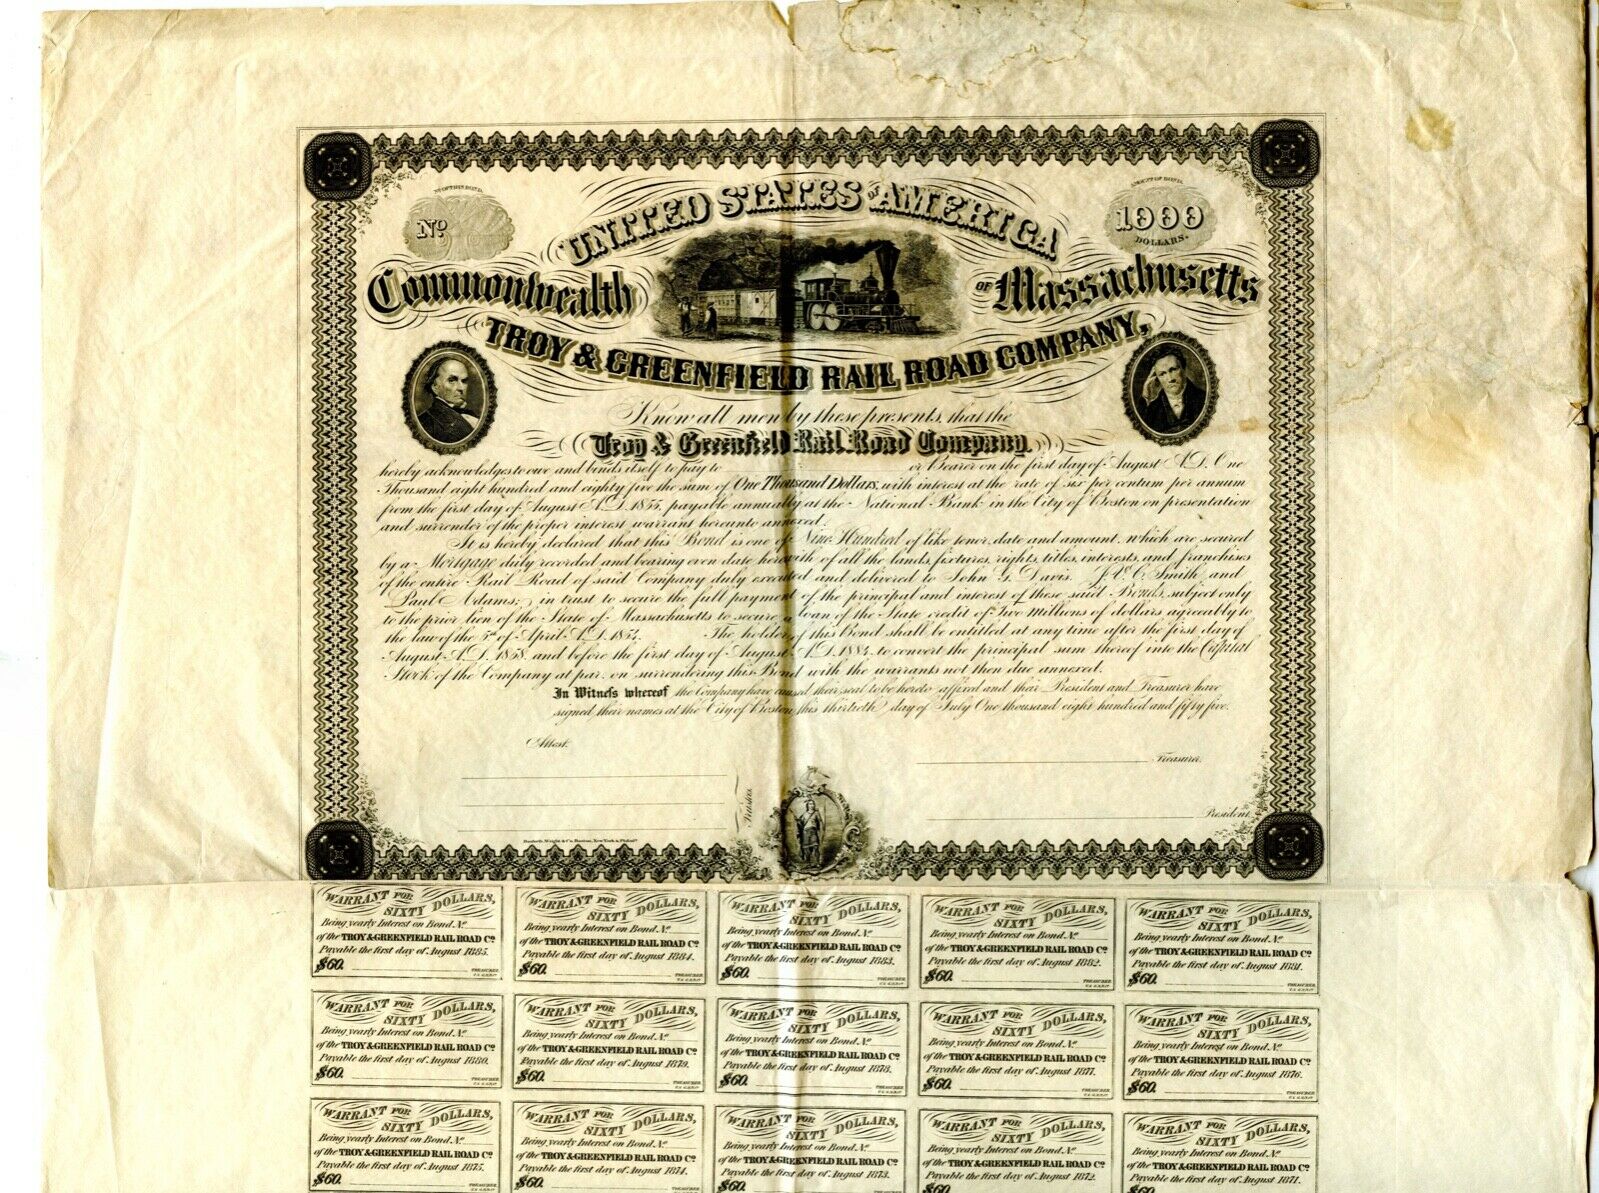 No OF THIS BOND.
No
AMOUNT OF BOND.
1000
DOLLARS.
UNITED STATES OF AMERICA
Commonwealth OF Massachusetts
TROY & GREENFIELD RAIL ROAD COMPANY,
Know all men by these presents, that the
Troy & Greenfield Rail Road Company.
hereby acknowledges to owe and binds itself to pay to or Bearer on the first day of August A.D. One
Thousand eight hundred and eighty five the sum of One Thousand Dollars, with interest at the rate of six per centum per annum
from the first day of August A.D. 1855, payable annually at the National Bank in the City of Boston on presentation
and surrender of the proper interest warrant hereunto annexed.
It is hereby declared that this Bond is one of Nine Hundred of like tenor, date and amount, which are secured
by a Mortgage duly recorded and bearing even date herewith of all the lands, fixtures, rights, titles, interests, and franchises
of the entire Rail Road of said Company duly executed and delivered to John G. Davis, J.V.C. Smith, and
Paul Adams; in trust to secure the full payment of the principal and interest of these said Bonds, subject only
to the prior lien of the State of Massachusetts to secure a loan of the State credit of Two Millions of dollars agreeably to
the law of the 5th of April A.D. 1854. The holder of this Bond shall be entitled at any time after the first day of
August A.D. 1858, and before the first day of August A.D. 1884, to convert the principal sum thereof into the Capital
Stock of the Company at par, on surrendering this Bond with the warrants not then due annexed.
In Witness whereof the Company have caused their seal to be hereto affixed and their President and Treasurer have
signed their names at the City of Boston, this thirtieth day of July One thousand eight hundred and fifty five.
Attest.
Treasurer.
Trustees.
President.
Danforth, Wright & Co. Boston, New York & Philada
WARRANT FOR SIXTY DOLLARS,
Being yearly Interest on Bond. No
of the TROY & GREENFIELD RAIL ROAD Co
Payable the first day of August 1885.
$60.
TREASURER
WARRANT FOR SIXTY DOLLARS,
Being yearly Interest on Bond. No
of the TROY & GREENFIELD RAIL ROAD Co
Payable the first day of August 1884.
$60.
TREASURER
WARRANT FOR SIXTY DOLLARS,
Being yearly Interest on Bond. No
of the TROY & GREENFIELD RAIL ROAD Co
Payable the first day of August 1883.
$60.
TREASURER
WARRANT FOR SIXTY DOLLARS,
Being yearly Interest on Bond. No
of the TROY & GREENFIELD RAIL ROAD Co
Payable the first day of August 1882.
$60.
TREASURER
WARRANT FOR SIXTY DOLLARS,
Being yearly Interest on Bond. No
of the TROY & GREENFIELD RAIL ROAD Co
Payable the first day of August 1881.
$60.
TREASURER
WARRANT FOR SIXTY DOLLARS,
Being yearly Interest on Bond. No
of the TROY & GREENFIELD RAIL ROAD Co
Payable the first day of August 1880.
$60.
TREASURER
WARRANT FOR SIXTY DOLLARS,
Being yearly Interest on Bond. No
of the TROY & GREENFIELD RAIL ROAD Co
Payable the first day of August 1879.
$60.
TREASURER
WARRANT FOR SIXTY DOLLARS,
Being yearly Interest on Bond. No
of the TROY & GREENFIELD RAIL ROAD Co
Payable the first day of August 1878.
$60.
TREASURER
WARRANT FOR SIXTY DOLLARS,
Being yearly Interest on Bond. No
of the TROY & GREENFIELD RAIL ROAD Co
Payable the first day of August 1877.
$60.
TREASURER
WARRANT FOR SIXTY DOLLARS,
Being yearly Interest on Bond. No
of the TROY & GREENFIELD RAIL ROAD Co
Payable the first day of August 1876.
$60.
TREASURER
WARRANT FOR SIXTY DOLLARS,
Being yearly Interest on Bond. No
of the TROY & GREENFIELD RAIL ROAD Co
Payable the first day of August 1875.
$60.
TREASURER
WARRANT FOR SIXTY DOLLARS,
Being yearly Interest on Bond. No
of the TROY & GREENFIELD RAIL ROAD Co
Payable the first day of August 1874.
$60.
TREASURER
WARRANT FOR SIXTY DOLLARS,
Being yearly Interest on Bond. No
of the TROY & GREENFIELD RAIL ROAD Co
Payable the first day of August 1873.
$60.
TREASURER
WARRANT FOR SIXTY DOLLARS,
Being yearly Interest on Bond. No
of the TROY & GREENFIELD RAIL ROAD Co
Payable the first day of August 1872.
$60.
WARRANT FOR SIXTY DOLLARS,
Being yearly Interest on Bond. No
of the TROY & GREENFIELD RAIL ROAD Co
Payable the first day of August 1871.
$60.